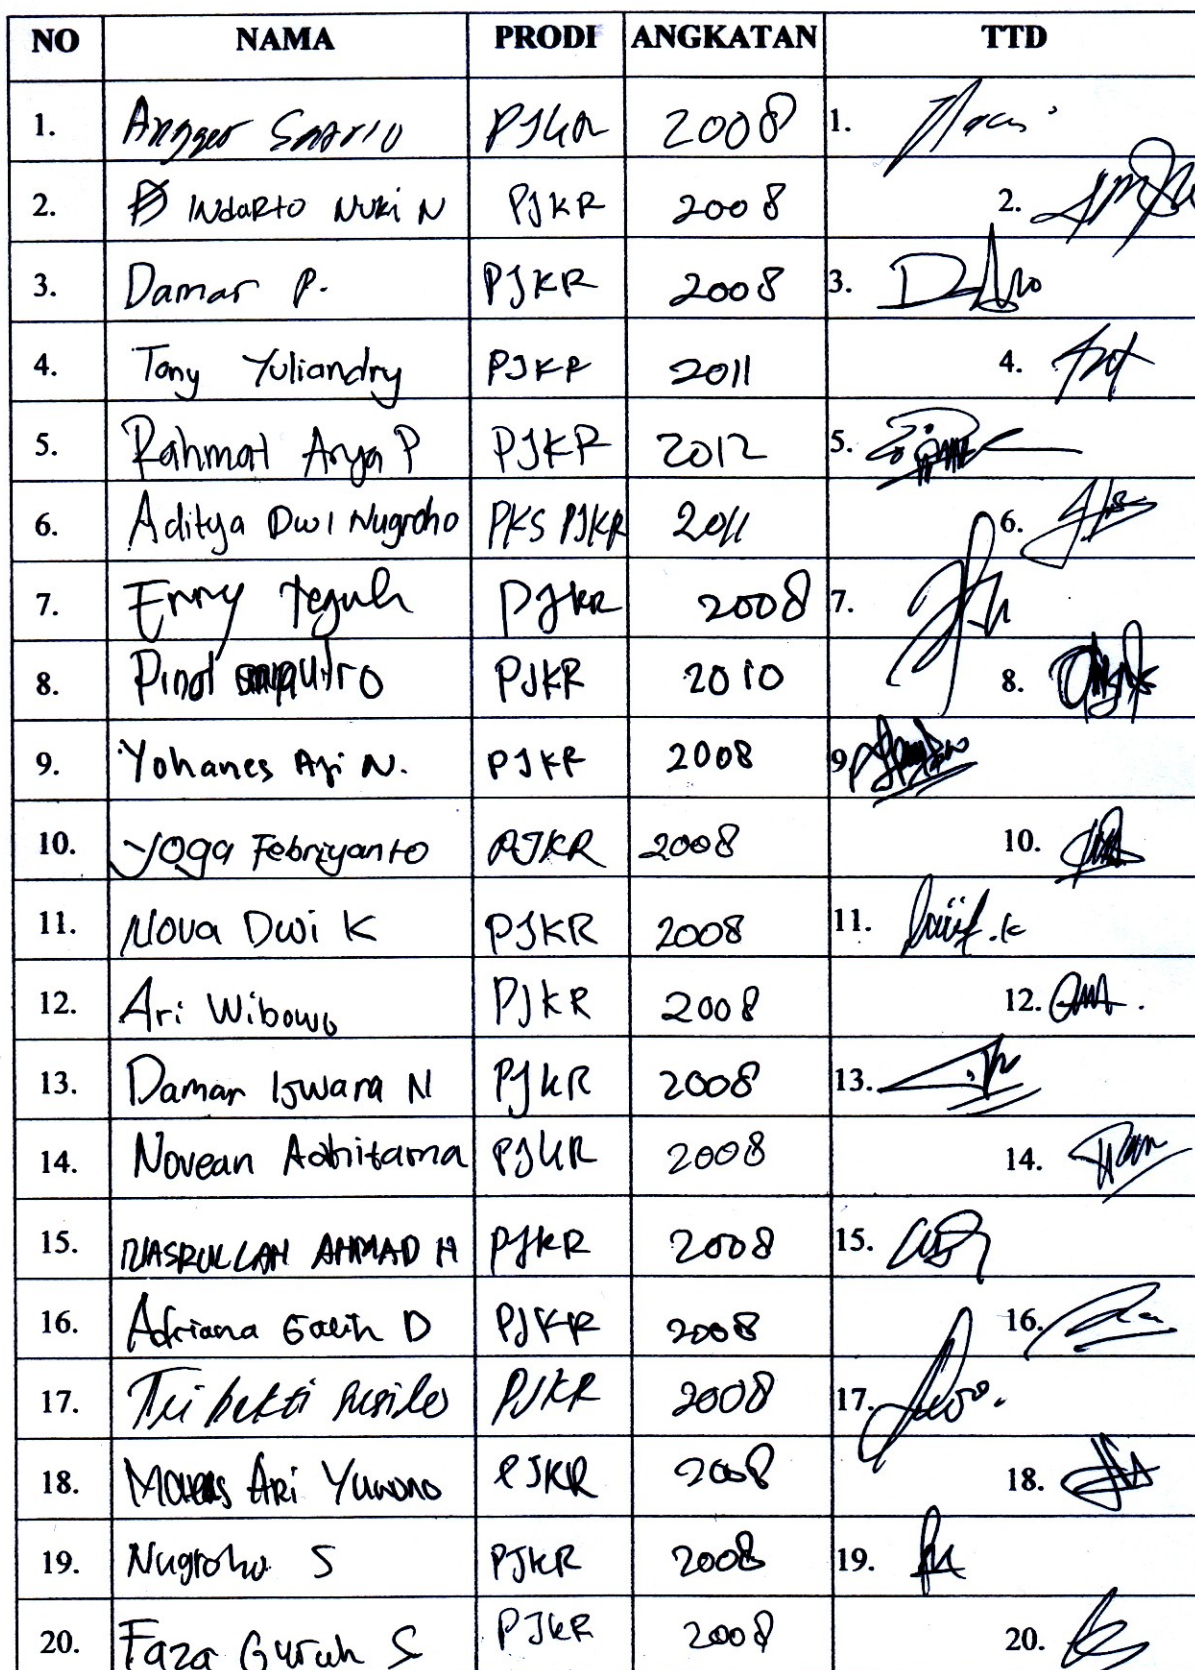 NO NAMA PRODI ANGKATAN TTD
1. Angger PJKR 2008 1.
2. Indarto Nuki N PJKR 2008 2.
3. Damar P. PJKR 2008 3.
4. Tony Yuliandry PJKR 2011 4.
5. Rahmat Arya P PJKR 2012 5.
6. Aditya Dwi Nugroho PKS PJKR 2011 6.
7. Enny Teguh PJKR 2008 7.
8. PJKR 2010 8.
9. Yohanes Aji N. PJKR 2008 9.
10. Yoga Febriyanto PJKR 2008 10.
11. Nova Dwi K PJKR 2008 11.
12. Ari Wibowo PJKR 2008 12.
13. Damar Iswara N PJKR 2008 13.
14. Novean Adhitama PJKR 2008 14.
15. NASRULLAH AHMAD H PJKR 2008 15.
16. Adriana Galih D PJKR 2008 16.
17. Tri bekti susilo PJKR 2008 17.
18. Ari Yuwono PJKR 2008 18.
19. Nugroho S PJKR 2008 19.
20. Faza Guruh S PJKR 2008 20.